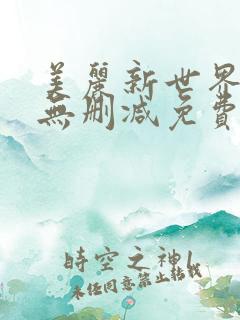 美麗新世界
無刪減免費
時空之神l
未经同意禁止转载